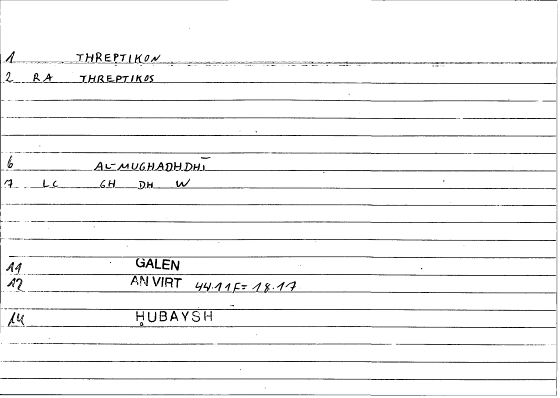 1 THREPTIKON
2 RA THREPTIKOS
6 AL-MUGHADHDHĪ
7 LC GH DH W
11 GALEN
12 AN VIRT 44.11F = 18.17
14 ḤUBAYSH